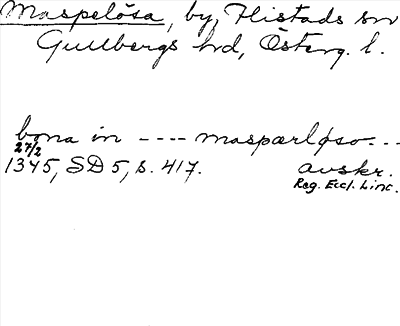 Maspelösa, by, Flistads sn
Gullbergs hd, Österg. l.
bona in ---- maspærløso...
27/2
1345, SD 5, s. 417. avskr.
Reg. Eccl. Linc.